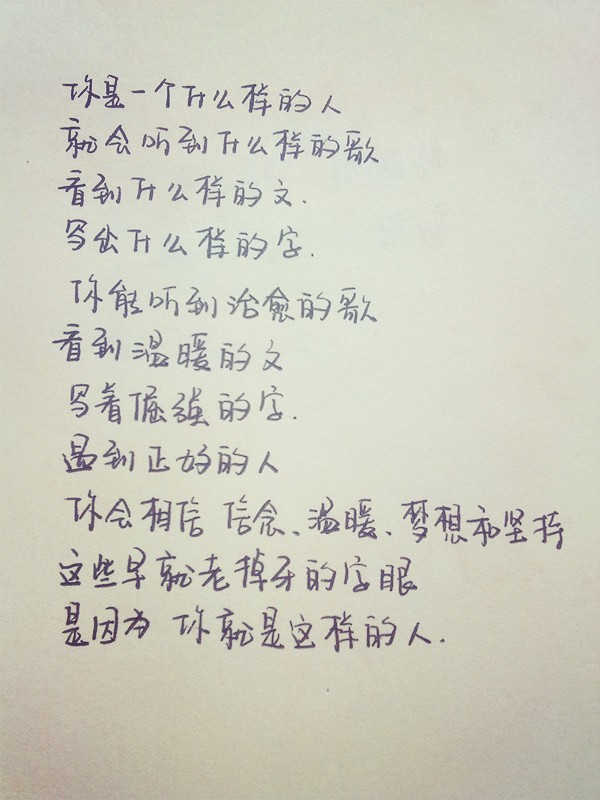 你是一个什么样的人
就会听到什么样的歌
看到什么样的文.
写出什么样的字.
你能听到治愈的歌
看到温暖的文
写着倔强的字.
遇到正好的人
你会相信 信念、温暖、梦想和坚持
这些早就老掉牙的字眼
是因为 你就是这样的人.